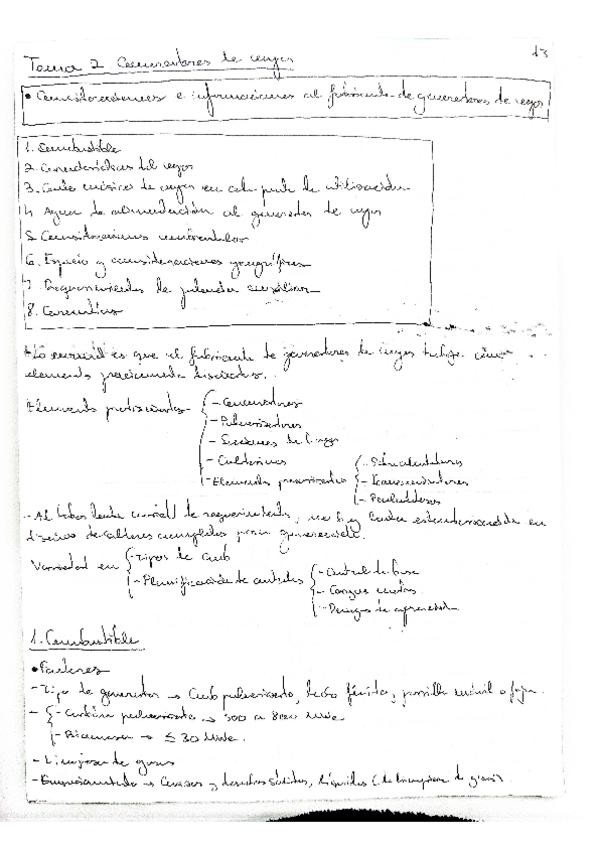 13
Tema 2 Generadores de vapor
• Consideraciones e informaciones al fabricante de generadores de vapor
1. Combustible
2. Características del vapor
3. Caudal másico de vapor en cada punto de utilización
4. Agua de alimentación al generador de vapor
5. Consideraciones ambientales
6. Espacio y consideraciones geográficas
7. Requerimientos de potencia auxiliar
8. Garantías
Lo normal es que el fabricante de generadores de vapor trabaje
elementos previamente diseñados.
Elementos prediseñados
- Quemadores
- Pulverizadores
- Sistemas de limpieza
- Elementos presurizados
- Sobrecalentadores
- Economizadores
- Recalentadores
- Al haber tanta variedad de requerimientos, no hay tanta estandarización en
diseños de calderas completas para generación.
Variedad en
- Tipos de Comb
- Planificación de centrales
- Central de base
1. Combustible
• Factores
- Tipo de generador → Comb pulverizado, lecho fluido, parrilla móvil o fija.
- Carbón pulverizado → 300 a
- Biomasa → ≤ 30
- Limpieza de gases
- Emplazamiento → Cenizas y desechos sólidos, líquidos (de limpieza de gases)